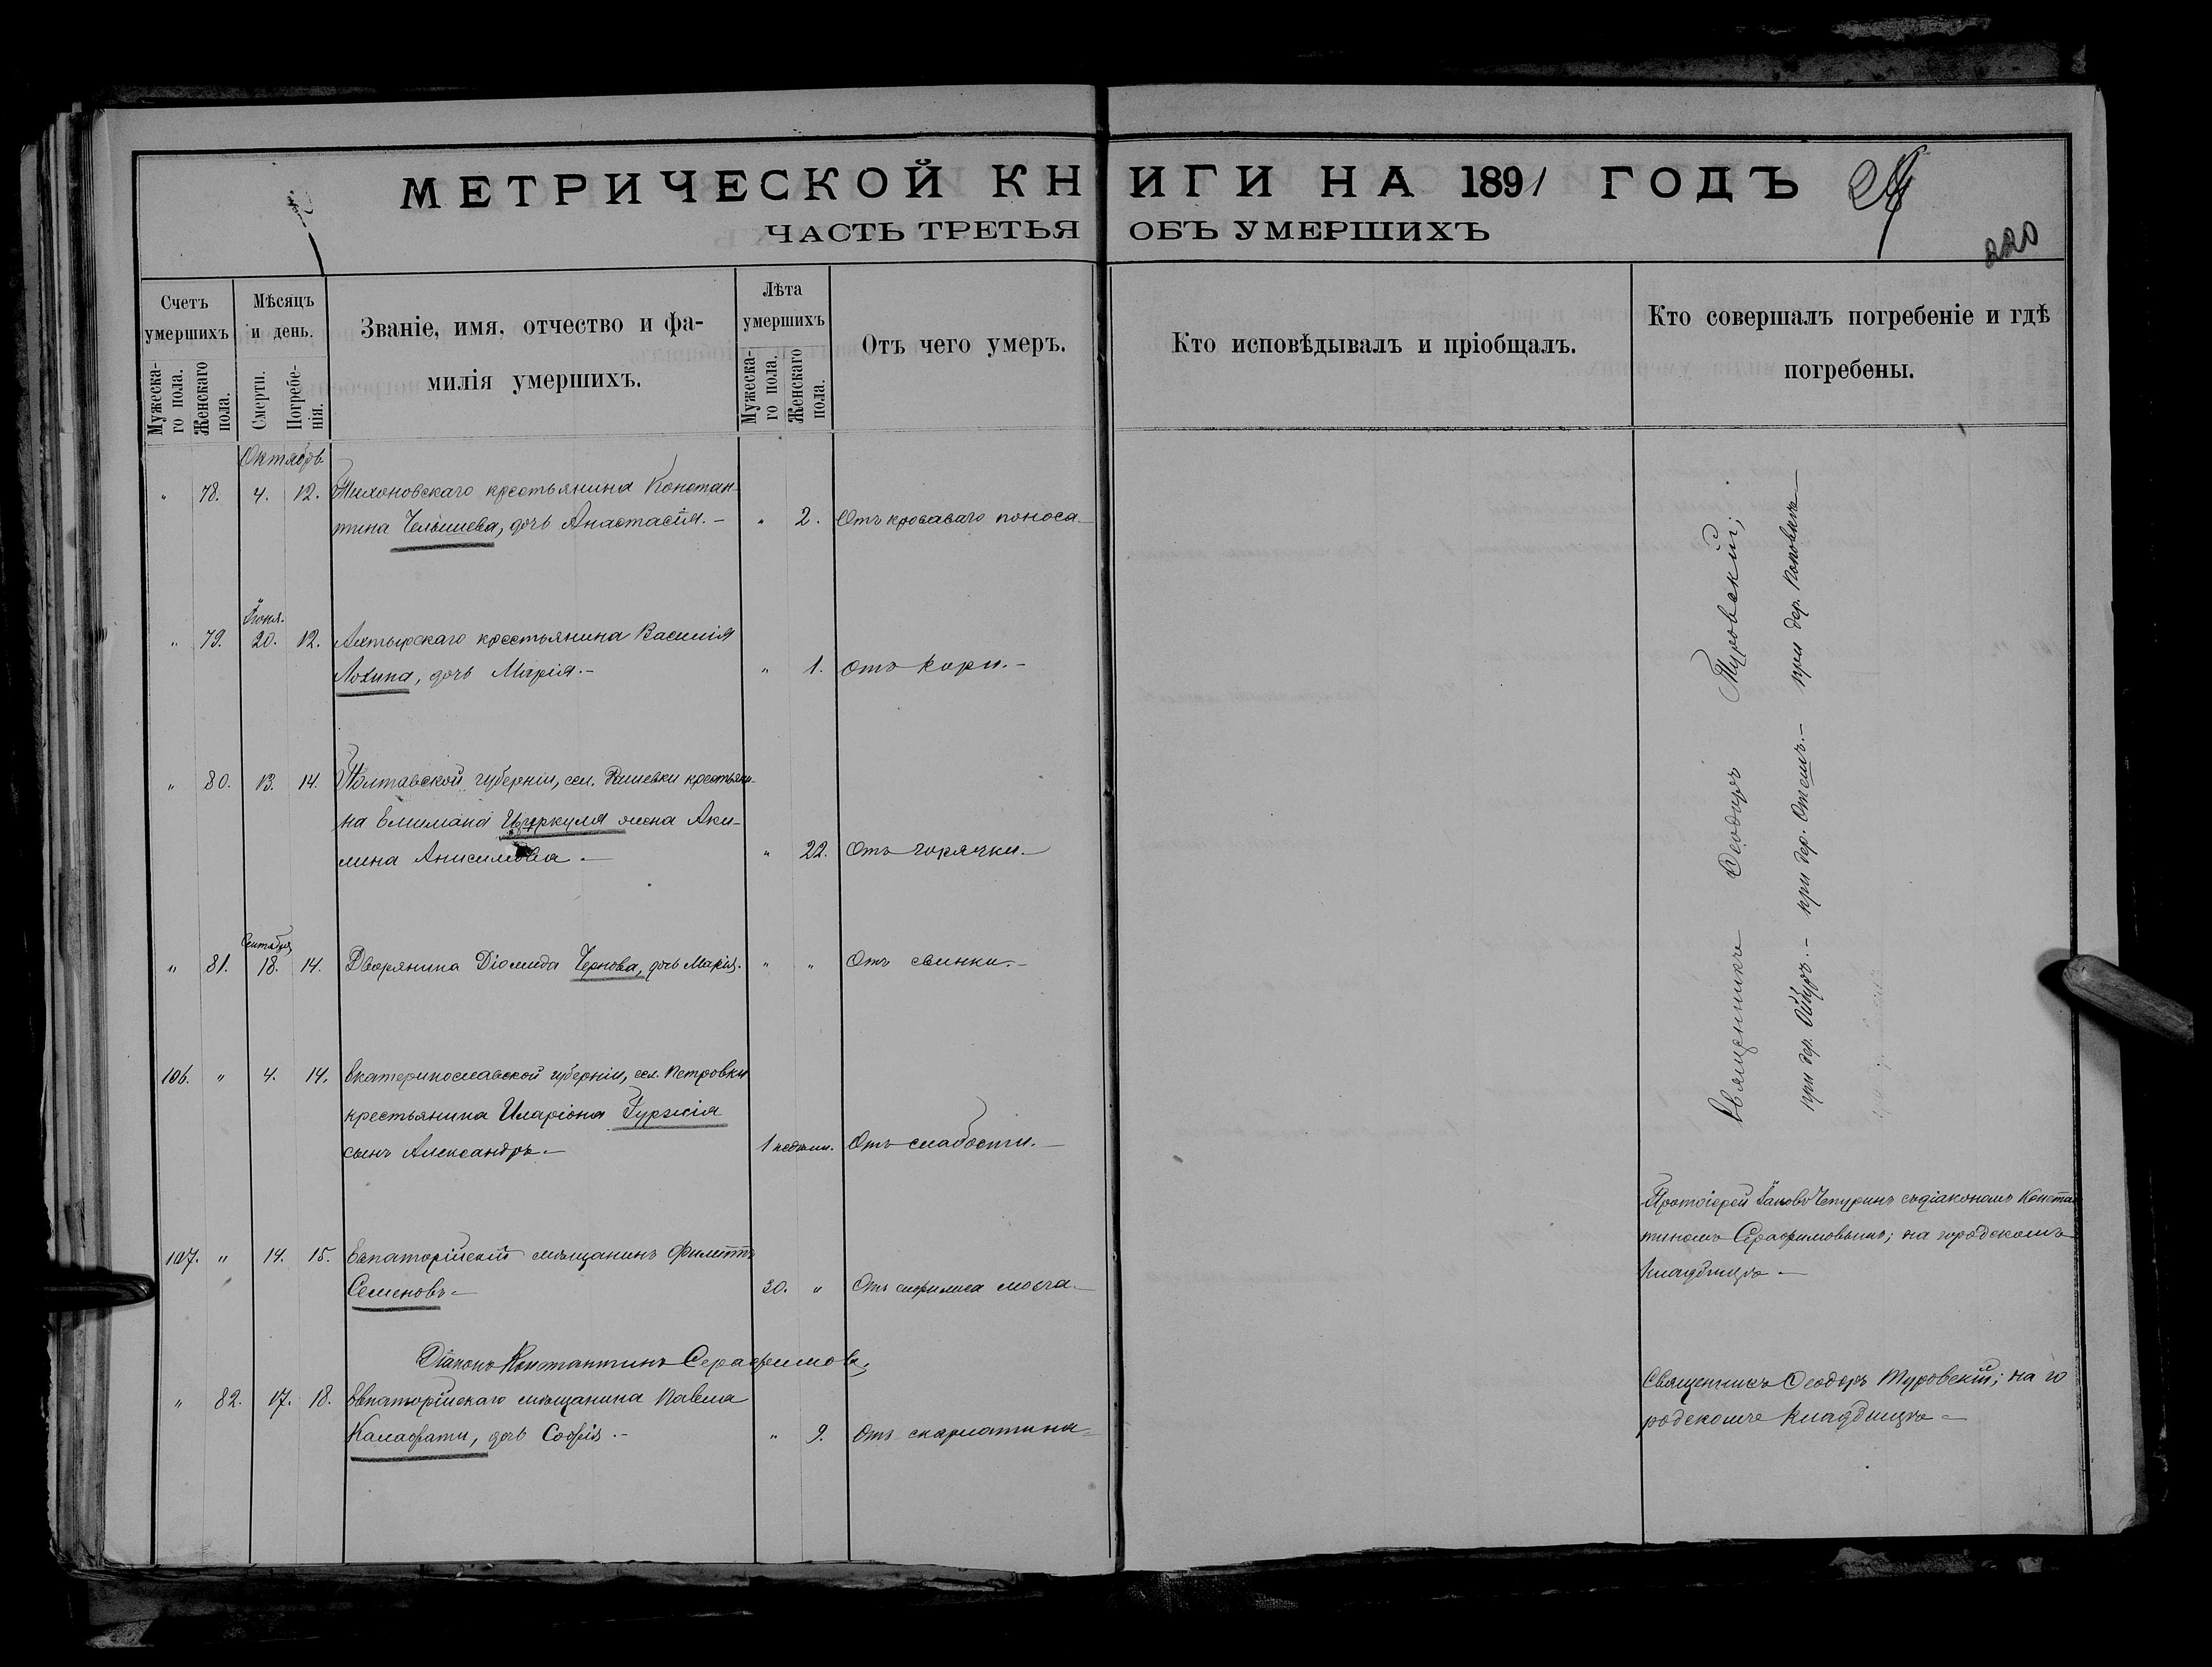 МЕТРИЧЕСКОЙ КНИГИ НА 1891 ГОДЪ
220
ЧАСТЬ ТРЕТЬЯ ОБЪ УМЕРШИХЪ
Счетъ умершихъ
Мѣсяцъ и день.
Званіе, имя, отчество и фамилія умершихъ.
Лѣта умершихъ
Отъ чего умеръ.
Кто исповѣдывалъ и пріобщалъ.
Кто совершалъ погребеніе и гдѣ погребены.
Мужеска-го пола.
Женскаго пола.
Смерти.
Погребе-нія.
Мужеска-го пола.
Женскаго пола.
Октябрь
" 78. 4. 12. Тихоновскаго крестьянина Констан-
тина Челышева, дочь Анастасія.— " 2. Отъ кроваваго поноса.—
Іюня.
" 79. 20. 12. Ахтырскаго крестьянина Василія
дочь Марія.— " 1. Отъ кори.—
" 80. 13. 14. Полтавской губерніи, сел. Рашевки крестьяни-
на жена Аки-
лина Анисимова.— " 22. Отъ горячки.—
Сентября
" 81. 18. 14. Дворянина Діомида Чернова, дочь Марія. " " Отъ свинки.—
106. " 4. 14. Екатеринославской губерніи, сел. Петровки
крестьянина Иларіона Гуржія
сынъ Александръ.— 1 недѣли. Отъ слабости.—
Священникъ Ѳеодоръ Туровскій;
при дер. Отешъ.— при дер. Поповкѣ—
107. " 14. 15. Евпаторійскій мѣщанинъ Филиппъ
Семеновъ.— 30. " Отъ сифилиса мозга.—
Протоіерей Іаковъ Чепуринъ съ діакономъ Констан
тиномъ Серафимовымъ; на городскомъ
кладбищѣ.—
Діаконъ Константинъ Серафимовъ,
" 82. 17. 18. Евпаторійскаго мѣщанина Павла
Калафати, дочь Софія.— " 9. Отъ скарлатины.—
Священникъ Ѳеодоръ Туровскій; на го
родскомъ кладбищѣ.—